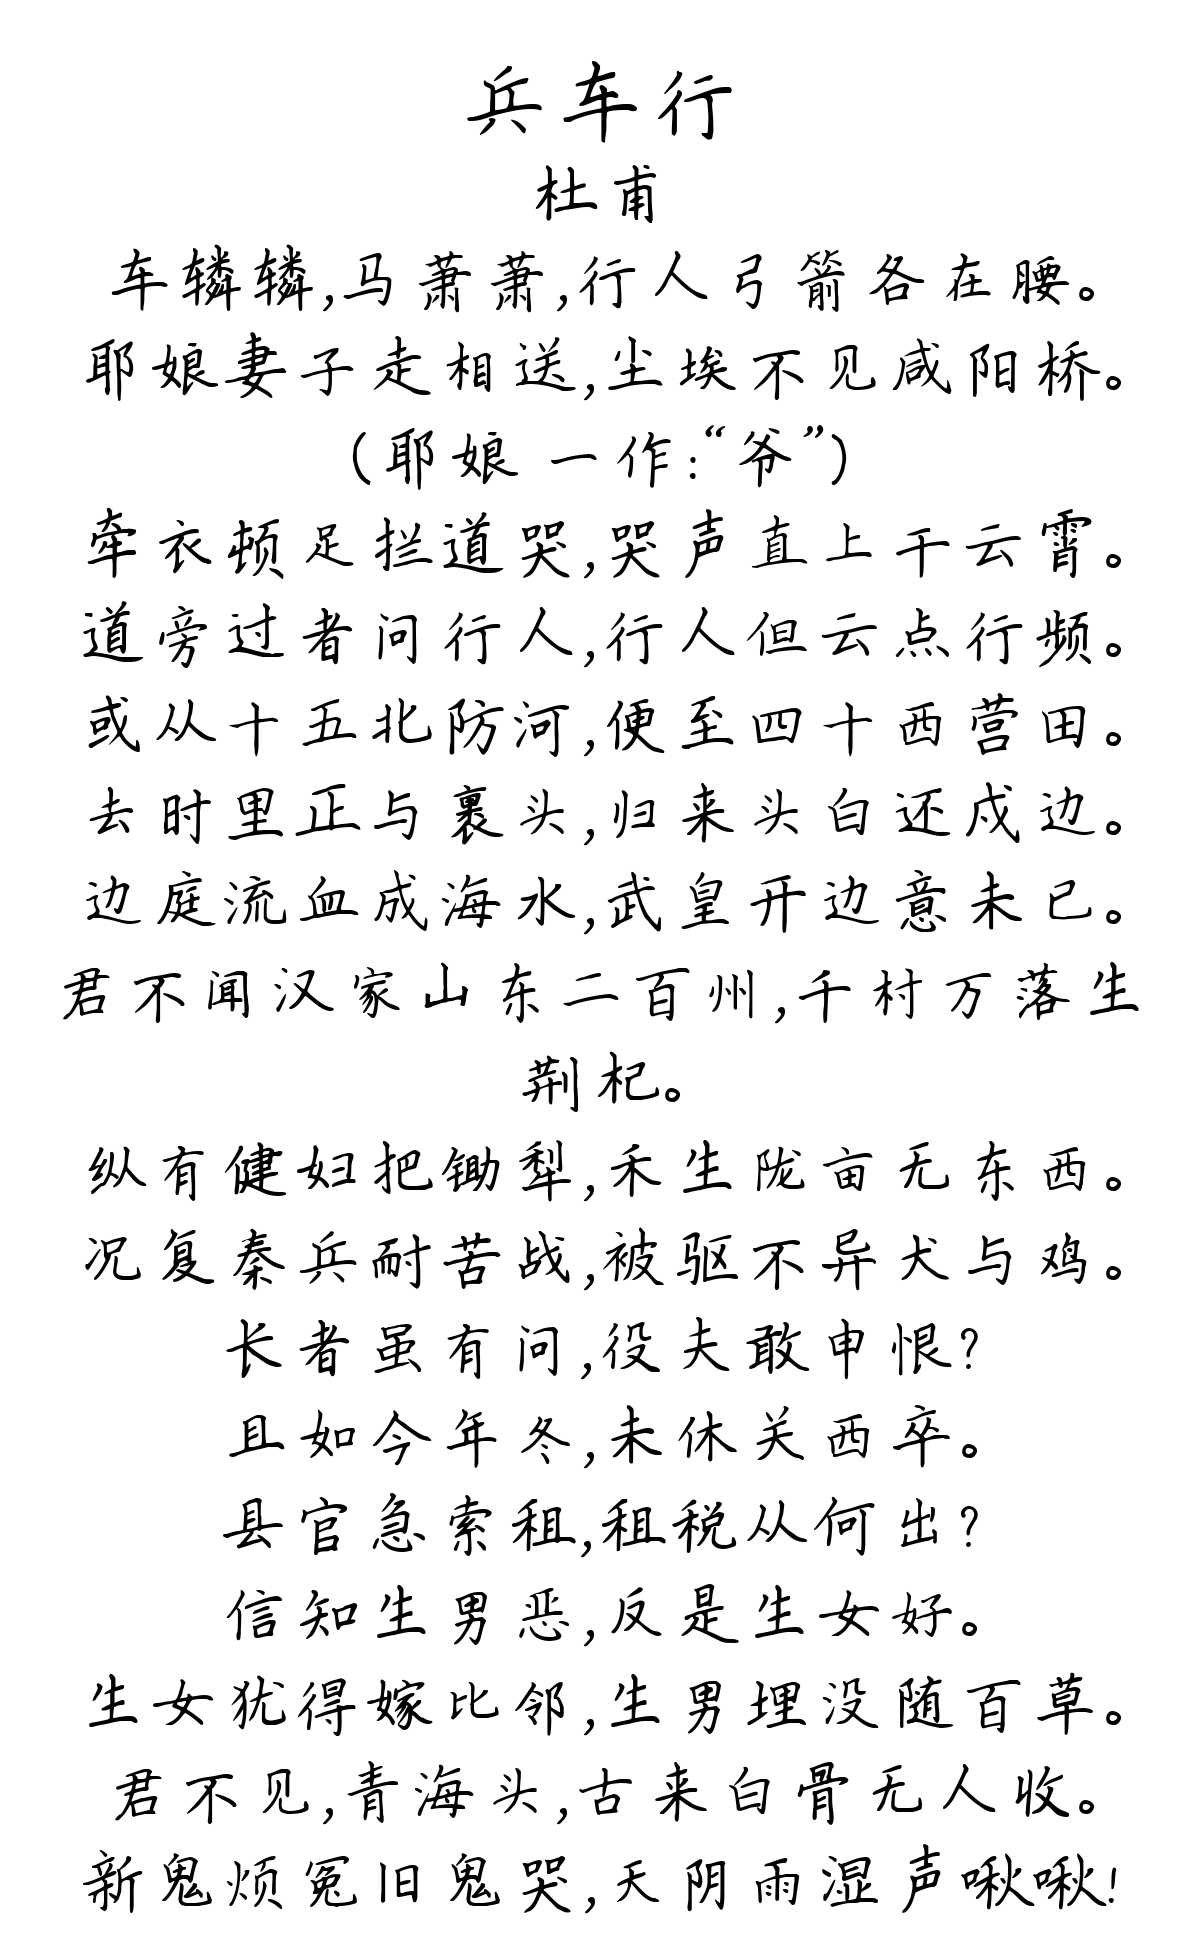 兵车行
杜甫
车辚辚,马萧萧,行人弓箭各在腰。
耶娘妻子走相送,尘埃不见咸阳桥。
(耶娘 一作:“爷”)
牵衣顿足拦道哭,哭声直上干云霄。
道旁过者问行人,行人但云点行频。
或从十五北防河,便至四十西营田。
去时里正与裹头,归来头白还戍边。
边庭流血成海水,武皇开边意未已。
君不闻汉家山东二百州,千村万落生
荆杞。
纵有健妇把锄犁,禾生陇亩无东西。
况复秦兵耐苦战,被驱不异犬与鸡。
长者虽有问,役夫敢申恨?
且如今年冬,未休关西卒。
县官急索租,租税从何出?
信知生男恶,反是生女好。
生女犹得嫁比邻,生男埋没随百草。
君不见,青海头,古来白骨无人收。
新鬼烦冤旧鬼哭,天阴雨湿声啾啾!